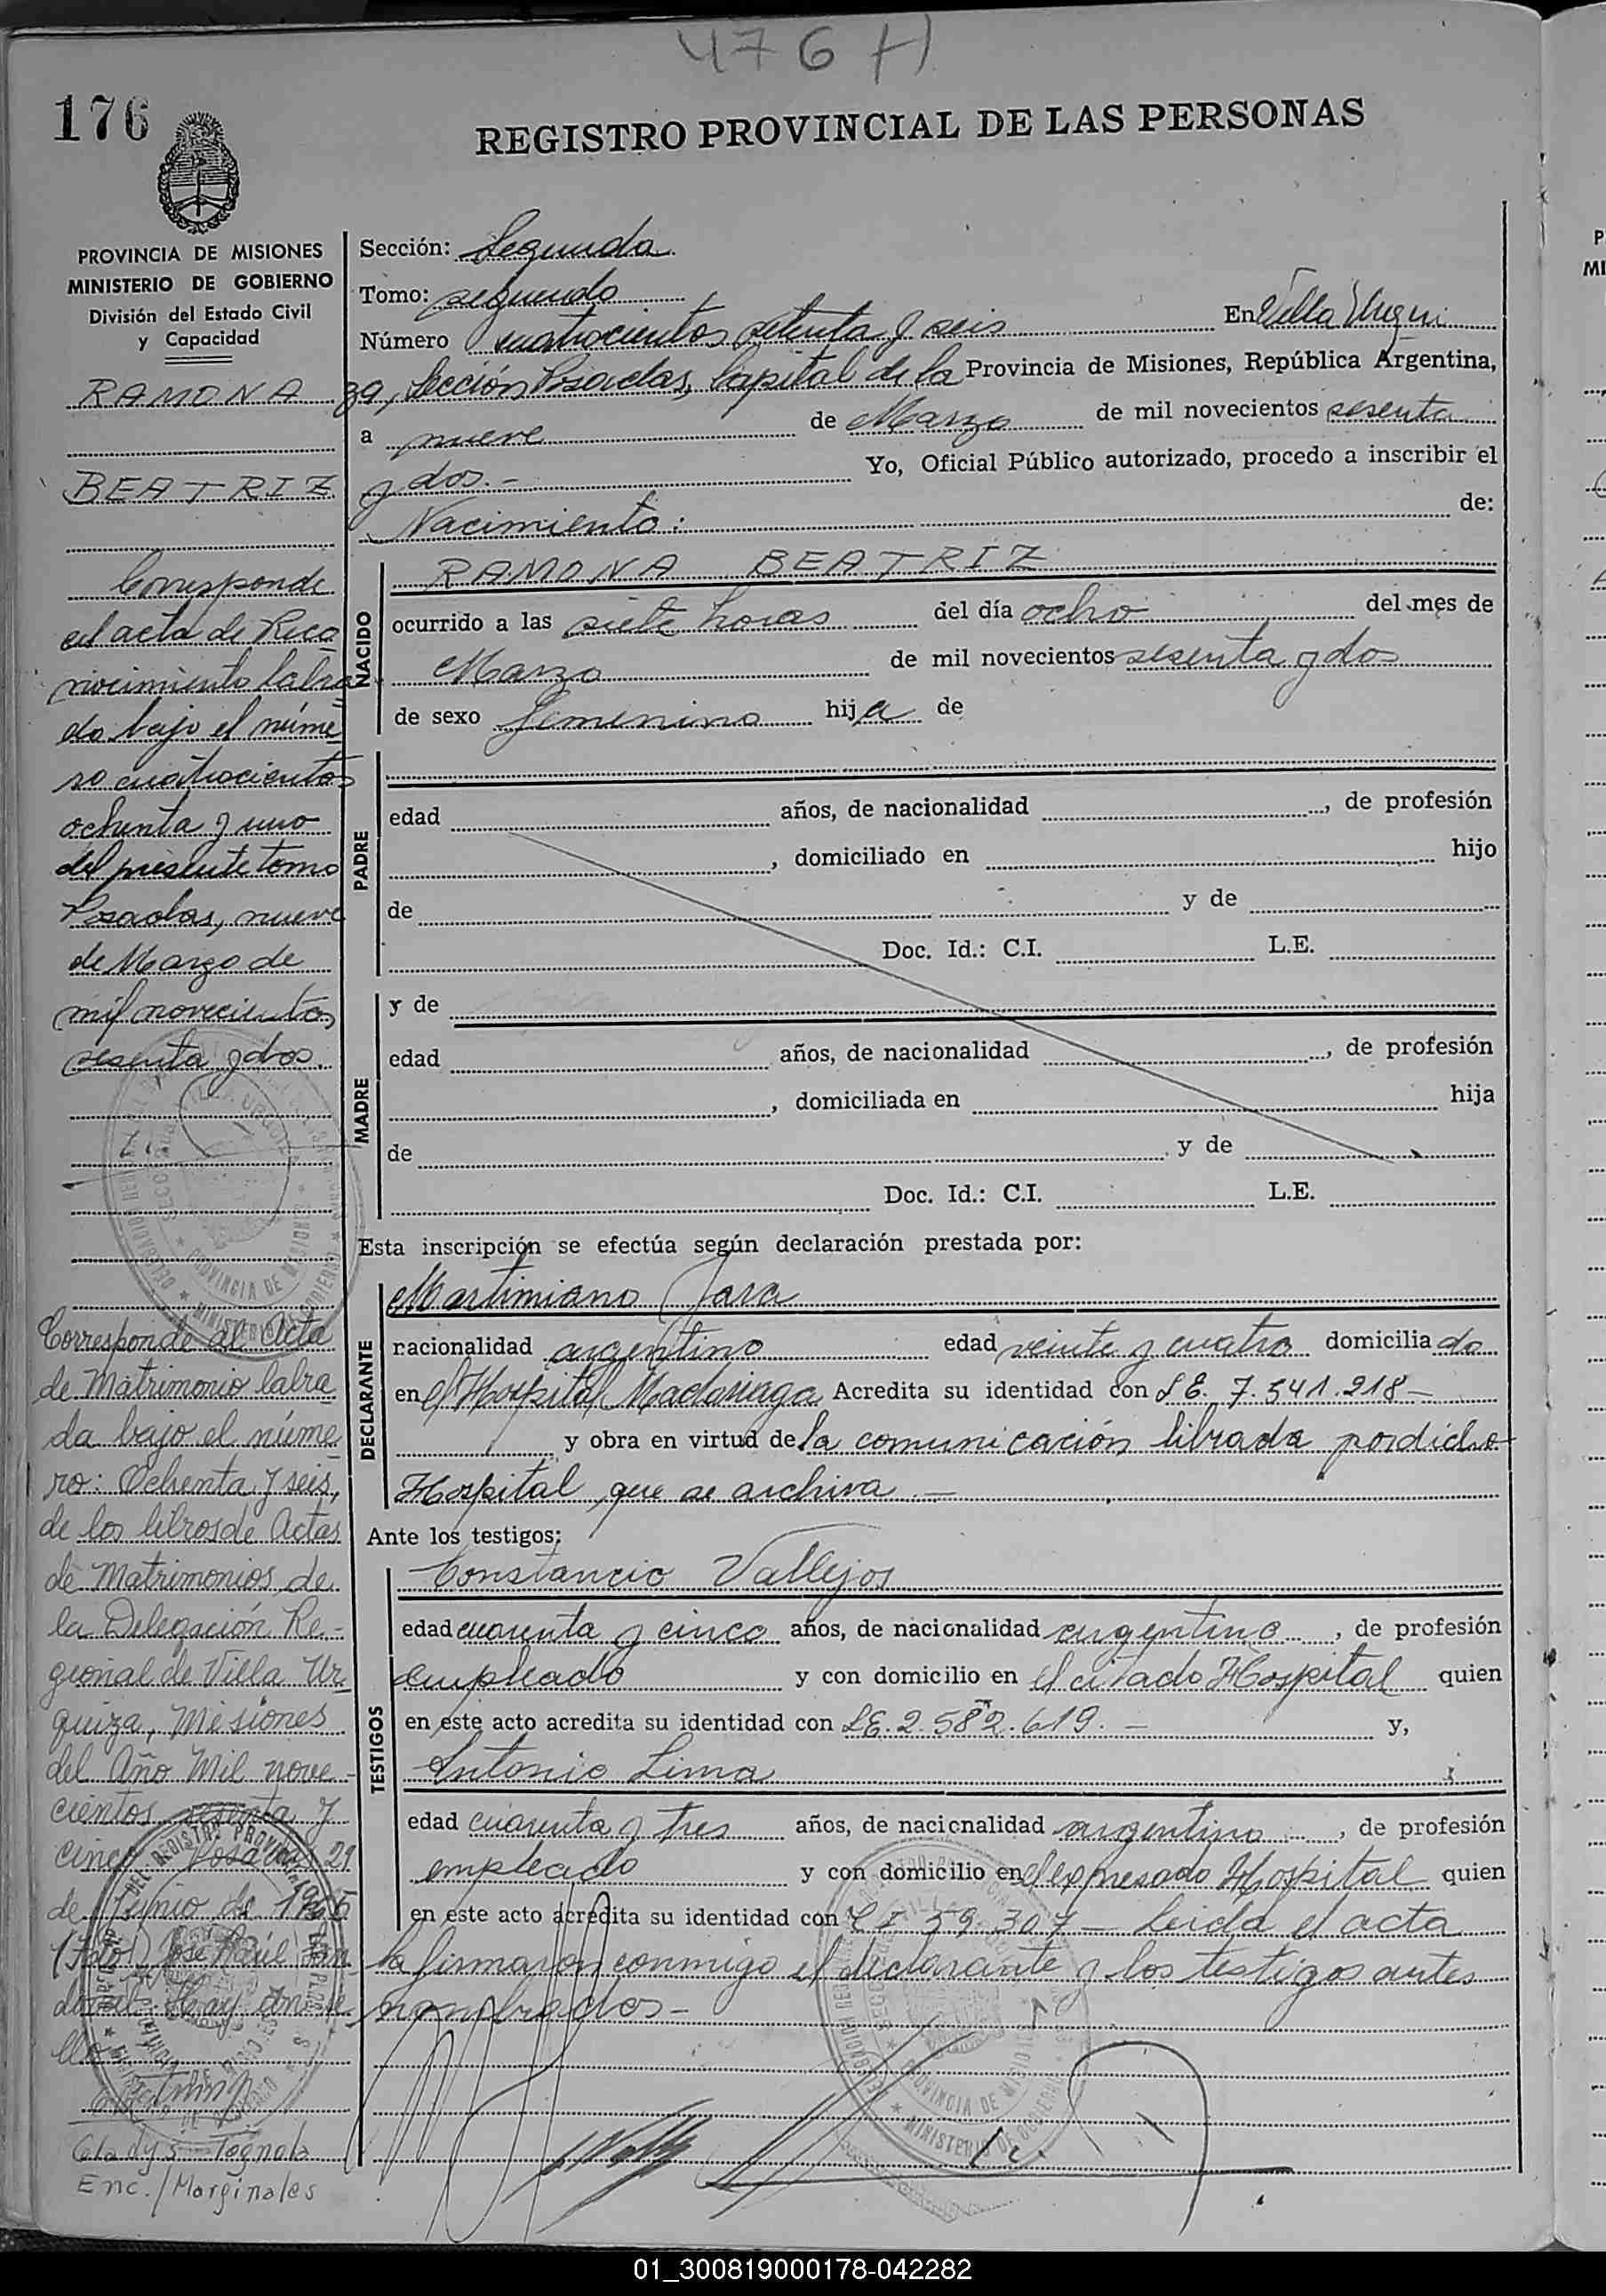 476 H
176
REGISTRO PROVINCIAL DE LAS PERSONAS
PROVINCIA DE MISIONES
MINISTERIO DE GOBIERNO
División del Estado Civil
y Capacidad
RAMONA
BEATRIZ
Corresponde
el acta de Reco
nocimiento labra
do bajo el núme
ro cuatrocientos
ochenta y uno
del presente tomo
Posadas, nueve
de Marzo de
mil novecientos
sesenta y dos.
Corresponde al Acta
de Matrimonio labra
da bajo el núme
ro: Ochenta y seis,
de los libros de Actas
de Matrimonios, de
la Delegación Re-
gional de Villa Ur-
quiza, Misiones
del Año Mil nove-
cientos sesenta y
cinco Posadas 21
de Junio de
José Raúl
Gladys Tognola
Enc./Marginales
Sección: Segunda
Tomo: segundo
Número cuatrocientos setenta y seis En Villa Urqui
za, Sección Posadas, Capital de la Provincia de Misiones, República Argentina,
a nueve de Marzo de mil novecientos sesenta
y dos.- Yo, Oficial Público autorizado, procedo a inscribir el
Nacimiento: de:
NACIDO
RAMONA BEATRIZ
ocurrido a las siete horas del día ocho del mes de
Marzo de mil novecientos sesenta y dos
de sexo femenino hija de
PADRE
edad años, de nacionalidad , de profesión
, domiciliado en hijo
de y de
Doc. Id.: C.I. L.E.
MADRE
y de
edad años, de nacionalidad , de profesión
, domiciliada en hija
de y de
Doc. Id.: C.I. L.E.
Esta inscripción se efectúa según declaración prestada por:
DECLARANTE
Martimiano Jara
nacionalidad argentino edad veinte y cuatro domiciliado
en el Hospital Madariaga Acredita su identidad con L.E. 7.541.218-
y obra en virtud de la comunicación librada por dicho
Hospital, que se archiva.-
Ante los testigos:
TESTIGOS
Constancio Vallejos
edad cuarenta y cinco años, de nacionalidad argentino, de profesión
empleado y con domicilio en el citado Hospital quien
en este acto acredita su identidad con L.E. 2.582.619.- y,
Antonio Lima
edad cuarenta y tres años, de nacionalidad argentino, de profesión
empleado y con domicilio en el expresado Hospital quien
en este acto acredita su identidad con C.I. 59.307- Leida el acta
la firmaron conmigo el declarante y los testigos antes
nombrados-
01_300819000178-042282